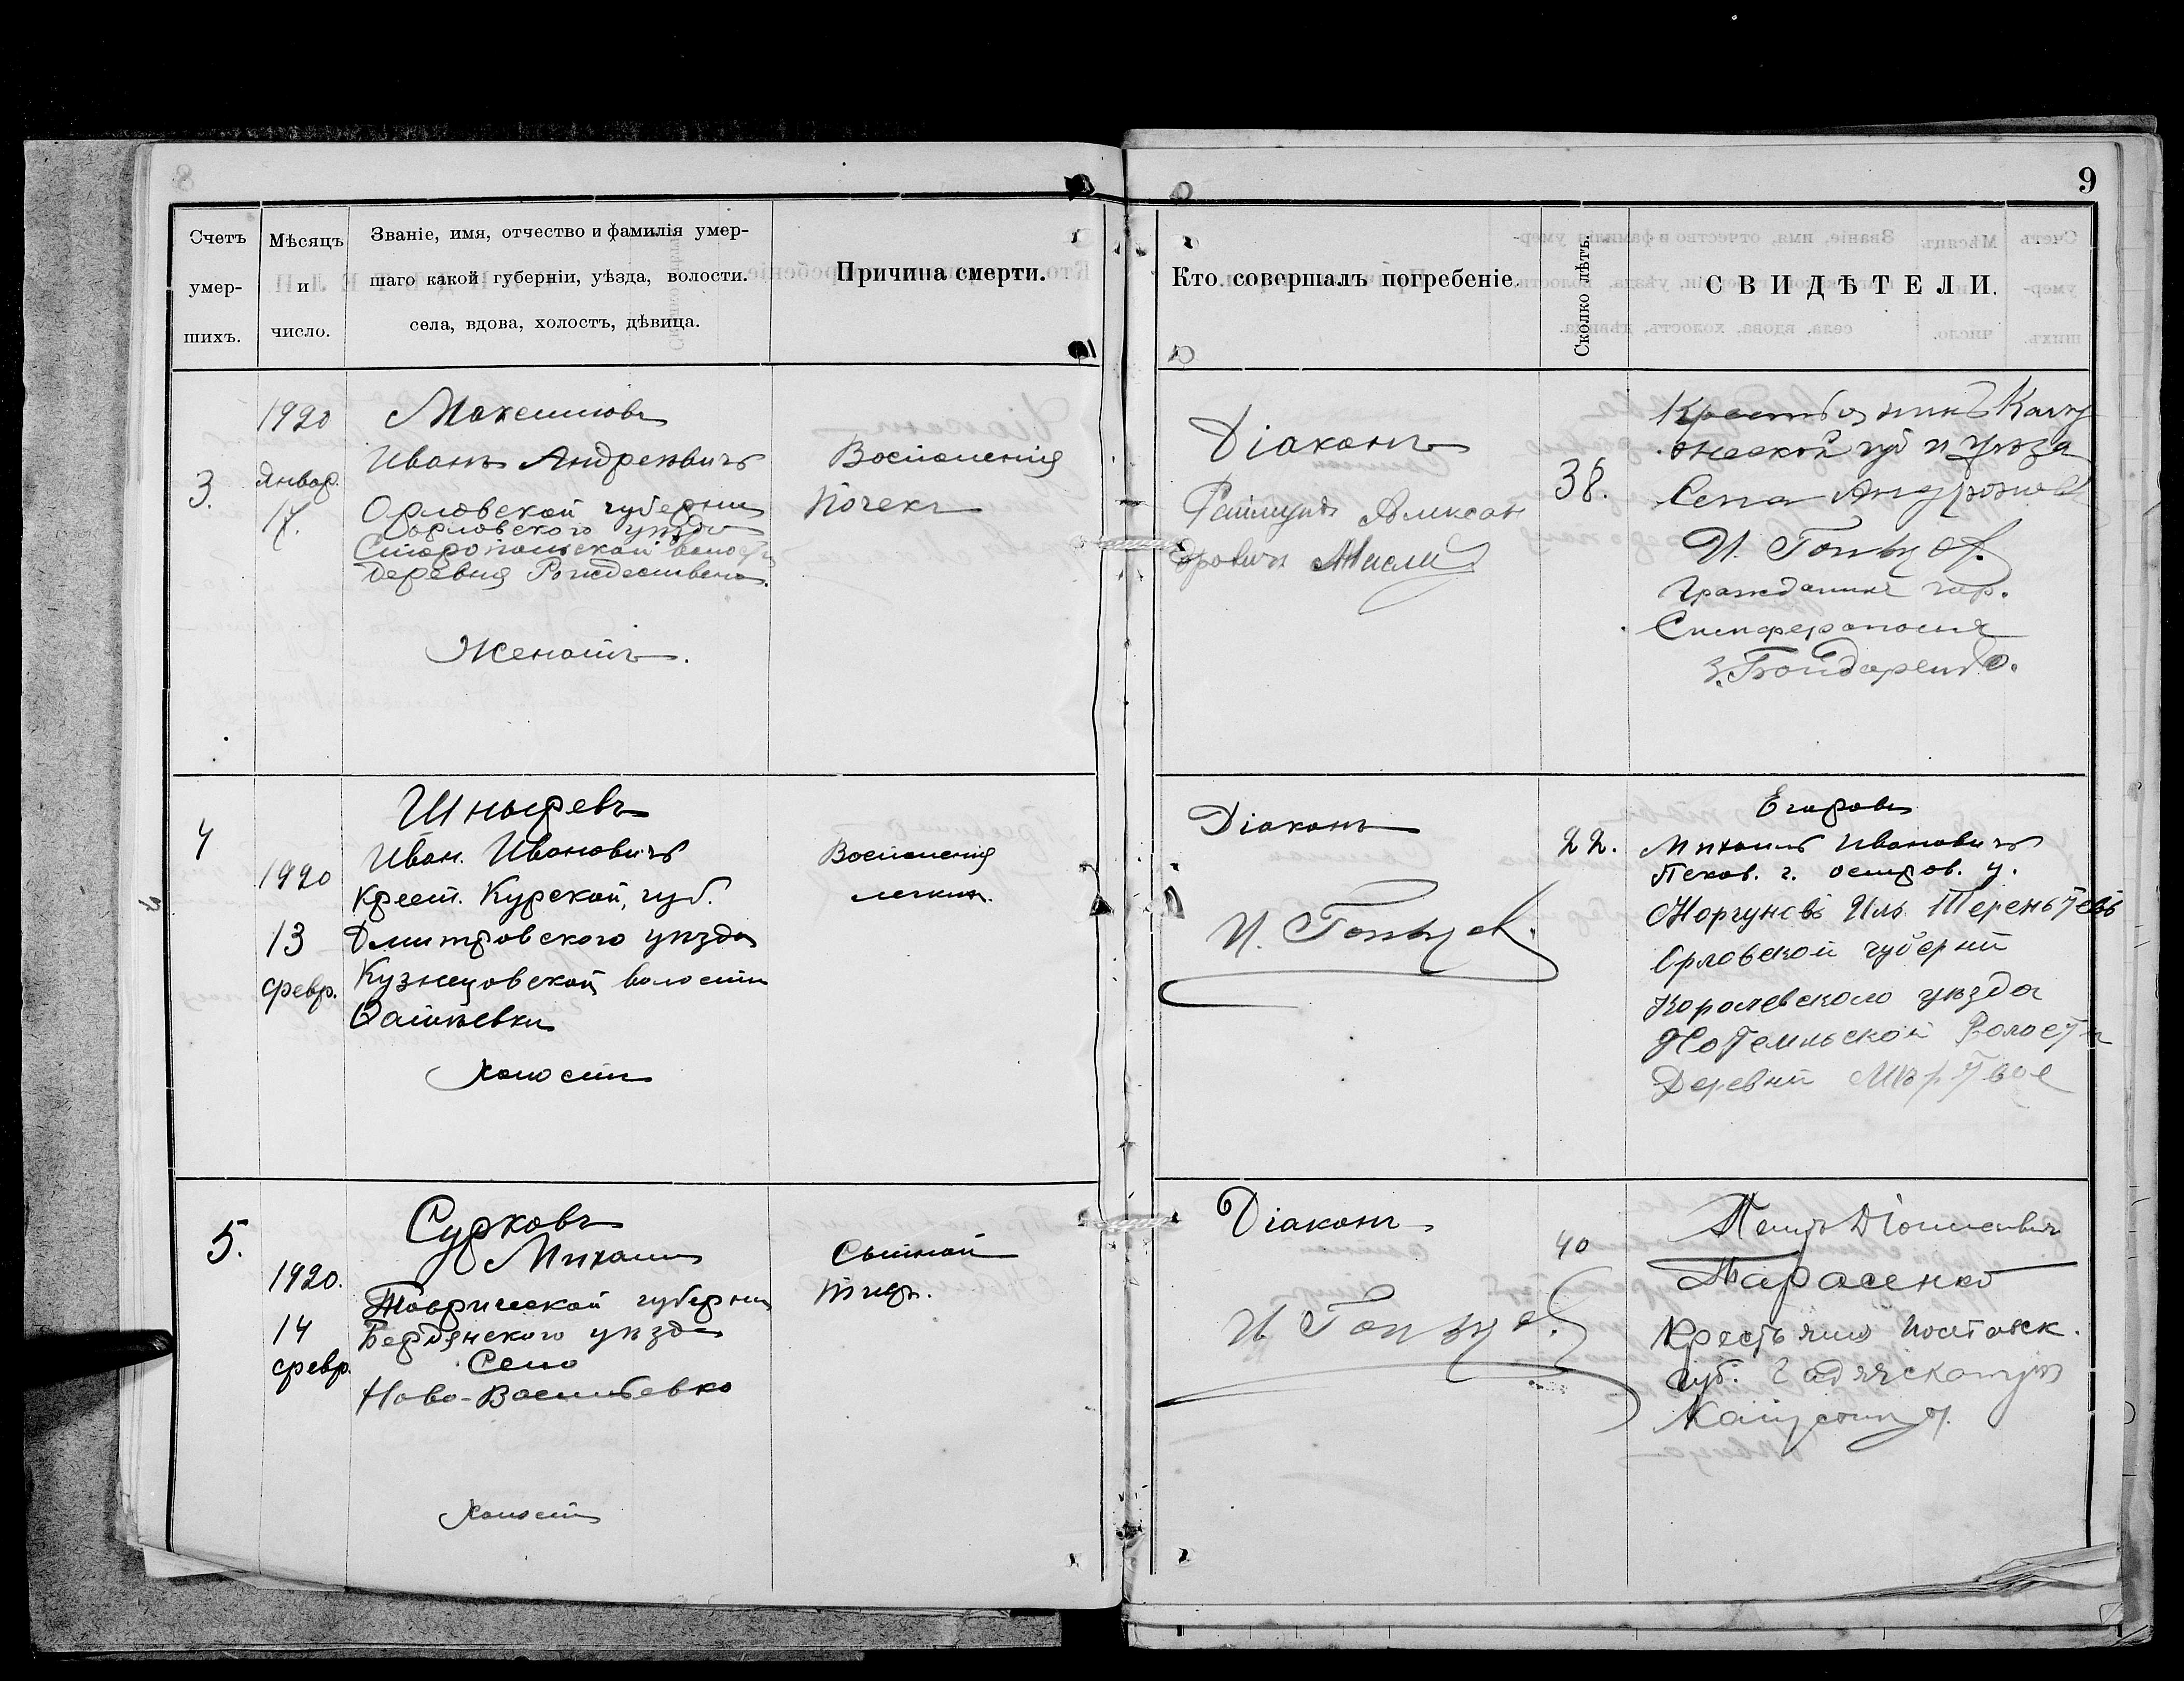 9
Счетъ
умер-
шихъ.
Мѣсяцъ
и
число.
Званіе, имя, отчество и фамилія умер-
шаго какой губерніи, уѣзда, волости.
села, вдова, холостъ, дѣвица.
Причина смерти.
Кто совершалъ погребеніе.
Сколко лѣтъ.
СВИДѢТЕЛИ.
3.
1920
Январ.
17.
Максимовъ
Иванъ Андреевичъ
Орловской губерніи
Орловского уѣзда
волости
деревня Рождествено.
Женатъ.
Воспаленія
почекъ
Діаконъ
Александ
ровичъ
38.
губ и уѣзда
Села
И. Гольцов.
Гражданинъ гор.
Симферополя
З. Бондаренко.
4
1920
13
февр.
Шныревъ
Иван. Ивановичъ
Крест. Курской, губ.
Дмитровского уѣзда
Кузнецовской волости
холостъ
Воспаленія
легких.
Діаконъ
И. Гольцов.
22.
Егоровъ
Михаилъ Ивановичъ
Псков. г. остров. у.
Моргуновъ Иль Терентьевъ
Орловской губерніи
уѣзда
Волости
Деревни
5.
1920.
14
февр.
Сурковъ
Михаилъ
Таврической губерніи
Бердянского уѣзда
Село
Ново-Васильевко
холостъ
Сыпной
тиф.
Діаконъ
И. Гольцов.
40
Петръ
Тарасенко
Крестьянин Полтавск.
губ.